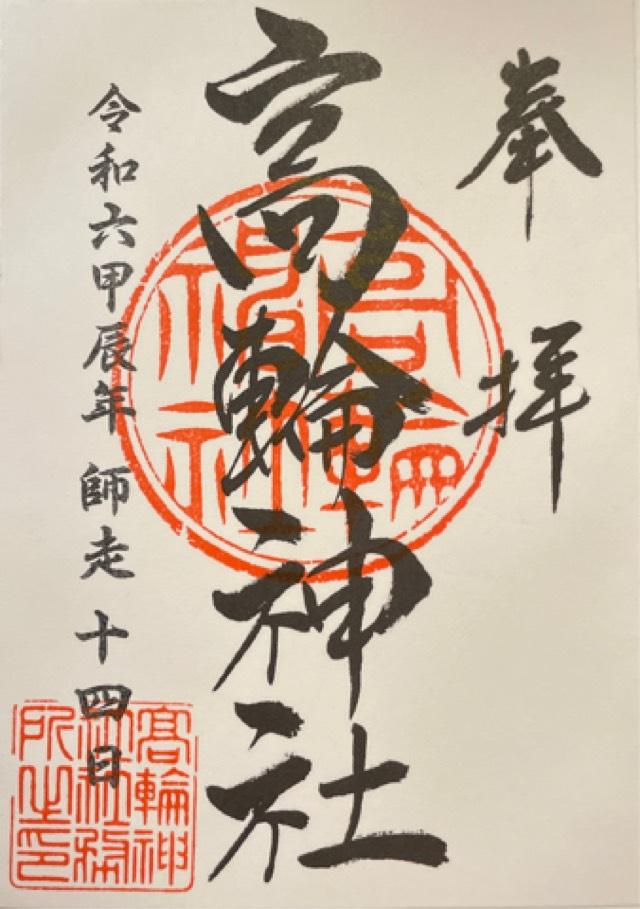 奉拝
高輪神社
令和六甲辰年 師走 十四日
高輪神
社社務
所之印